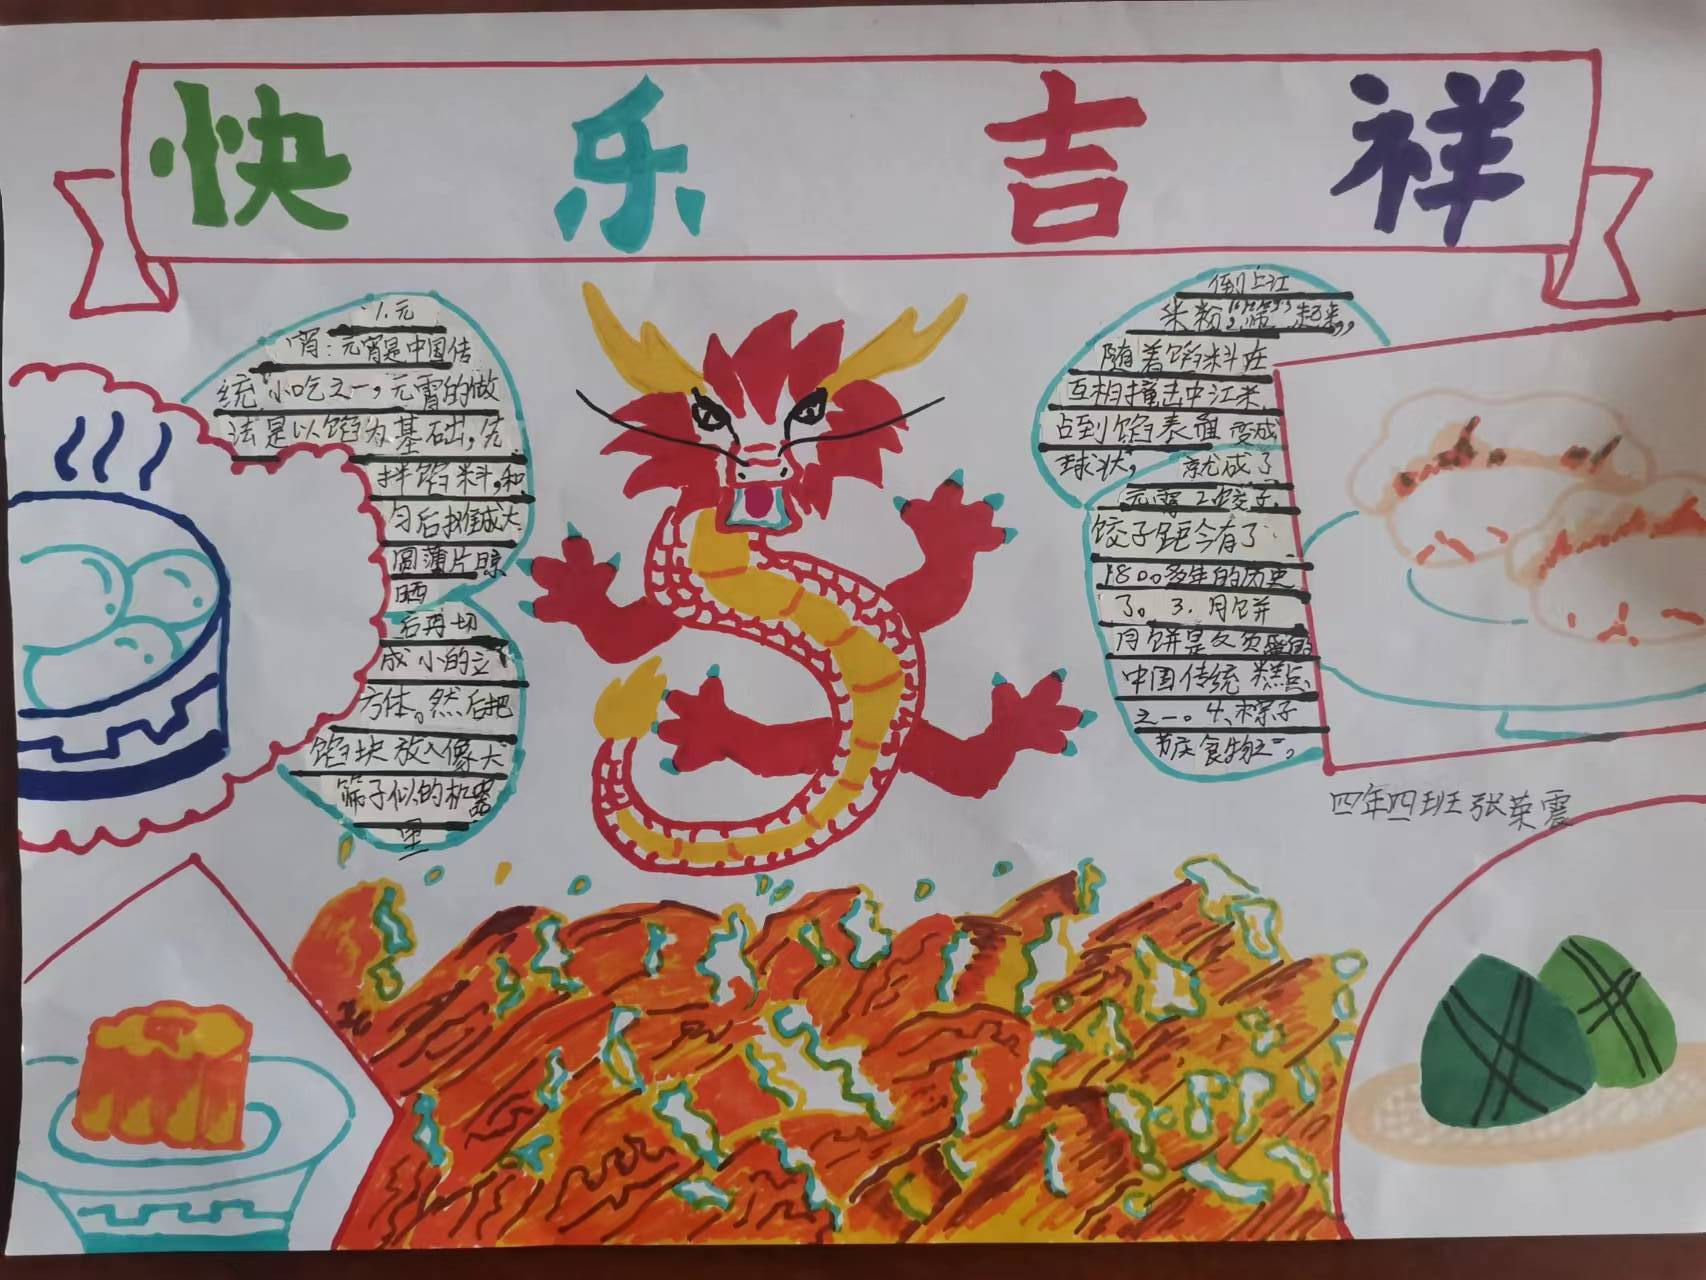 快乐吉祥
1.元
宵:元宵是中国传
统小吃之一,元霄的做
法是以馅为基础,先
拌馅料,和
匀后摊成大
圆薄片晾
晒
后再切
成小的立
方体。然后把
馅块放入像大
筛子似的机器
里
倒上江
米粉,“筛”起来,
随着馅料在
互相撞击中江米
占到馅表面变成
球状,就成了
元霄2.饺子,
饺子距今有了
1800多年的历史
了。3.月饼
月饼是久负盛名的
中国传统糕点
之一。4、粽子
节庆食物之一。
四年四班张荣震